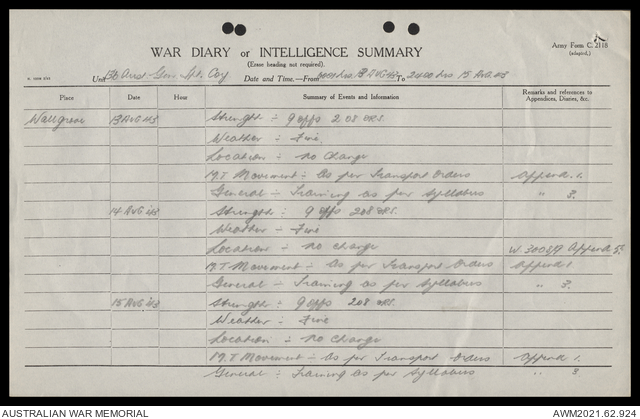 Army Form C. 2118
(adapted.)
WAR DIARY or INTELLIGENCE SUMMARY
(Erase heading not required).
Unit 136 Aust Gen. Tpt. Coy Date and Time.—From 0001 hrs 13 AUG 43 To 2400 hrs 15 AUG 43
Place Date Hour Summary of Events and Information Remarks and references to Appendices, Diaries, &c.
Wallgrove 13 AUG 43 Strength :- 9 offs 208 ORS.
Weather :- Fine
Location :- No Change
M.T Movement :- As per Transport Orders Append. 1.
General :- Training as per Syllabus " 3.
14 AUG 43 Strength :- 9 offs 208 ORS.
Weather :- Fine
Location :- No Change W.3008/9 Append 5.
M.T Movement :- As per Transport Orders Append 1
General :- Training as per Syllabus " 3.
15 AUG 43 Strength :- 9 offs 208
Weather :- Fine
Location :- No Change
M.T Movement :- As per Transport Orders Append 1.
General :- Training as per Syllabus " 3.
AUSTRALIAN WAR MEMORIAL AWM2021.62.924